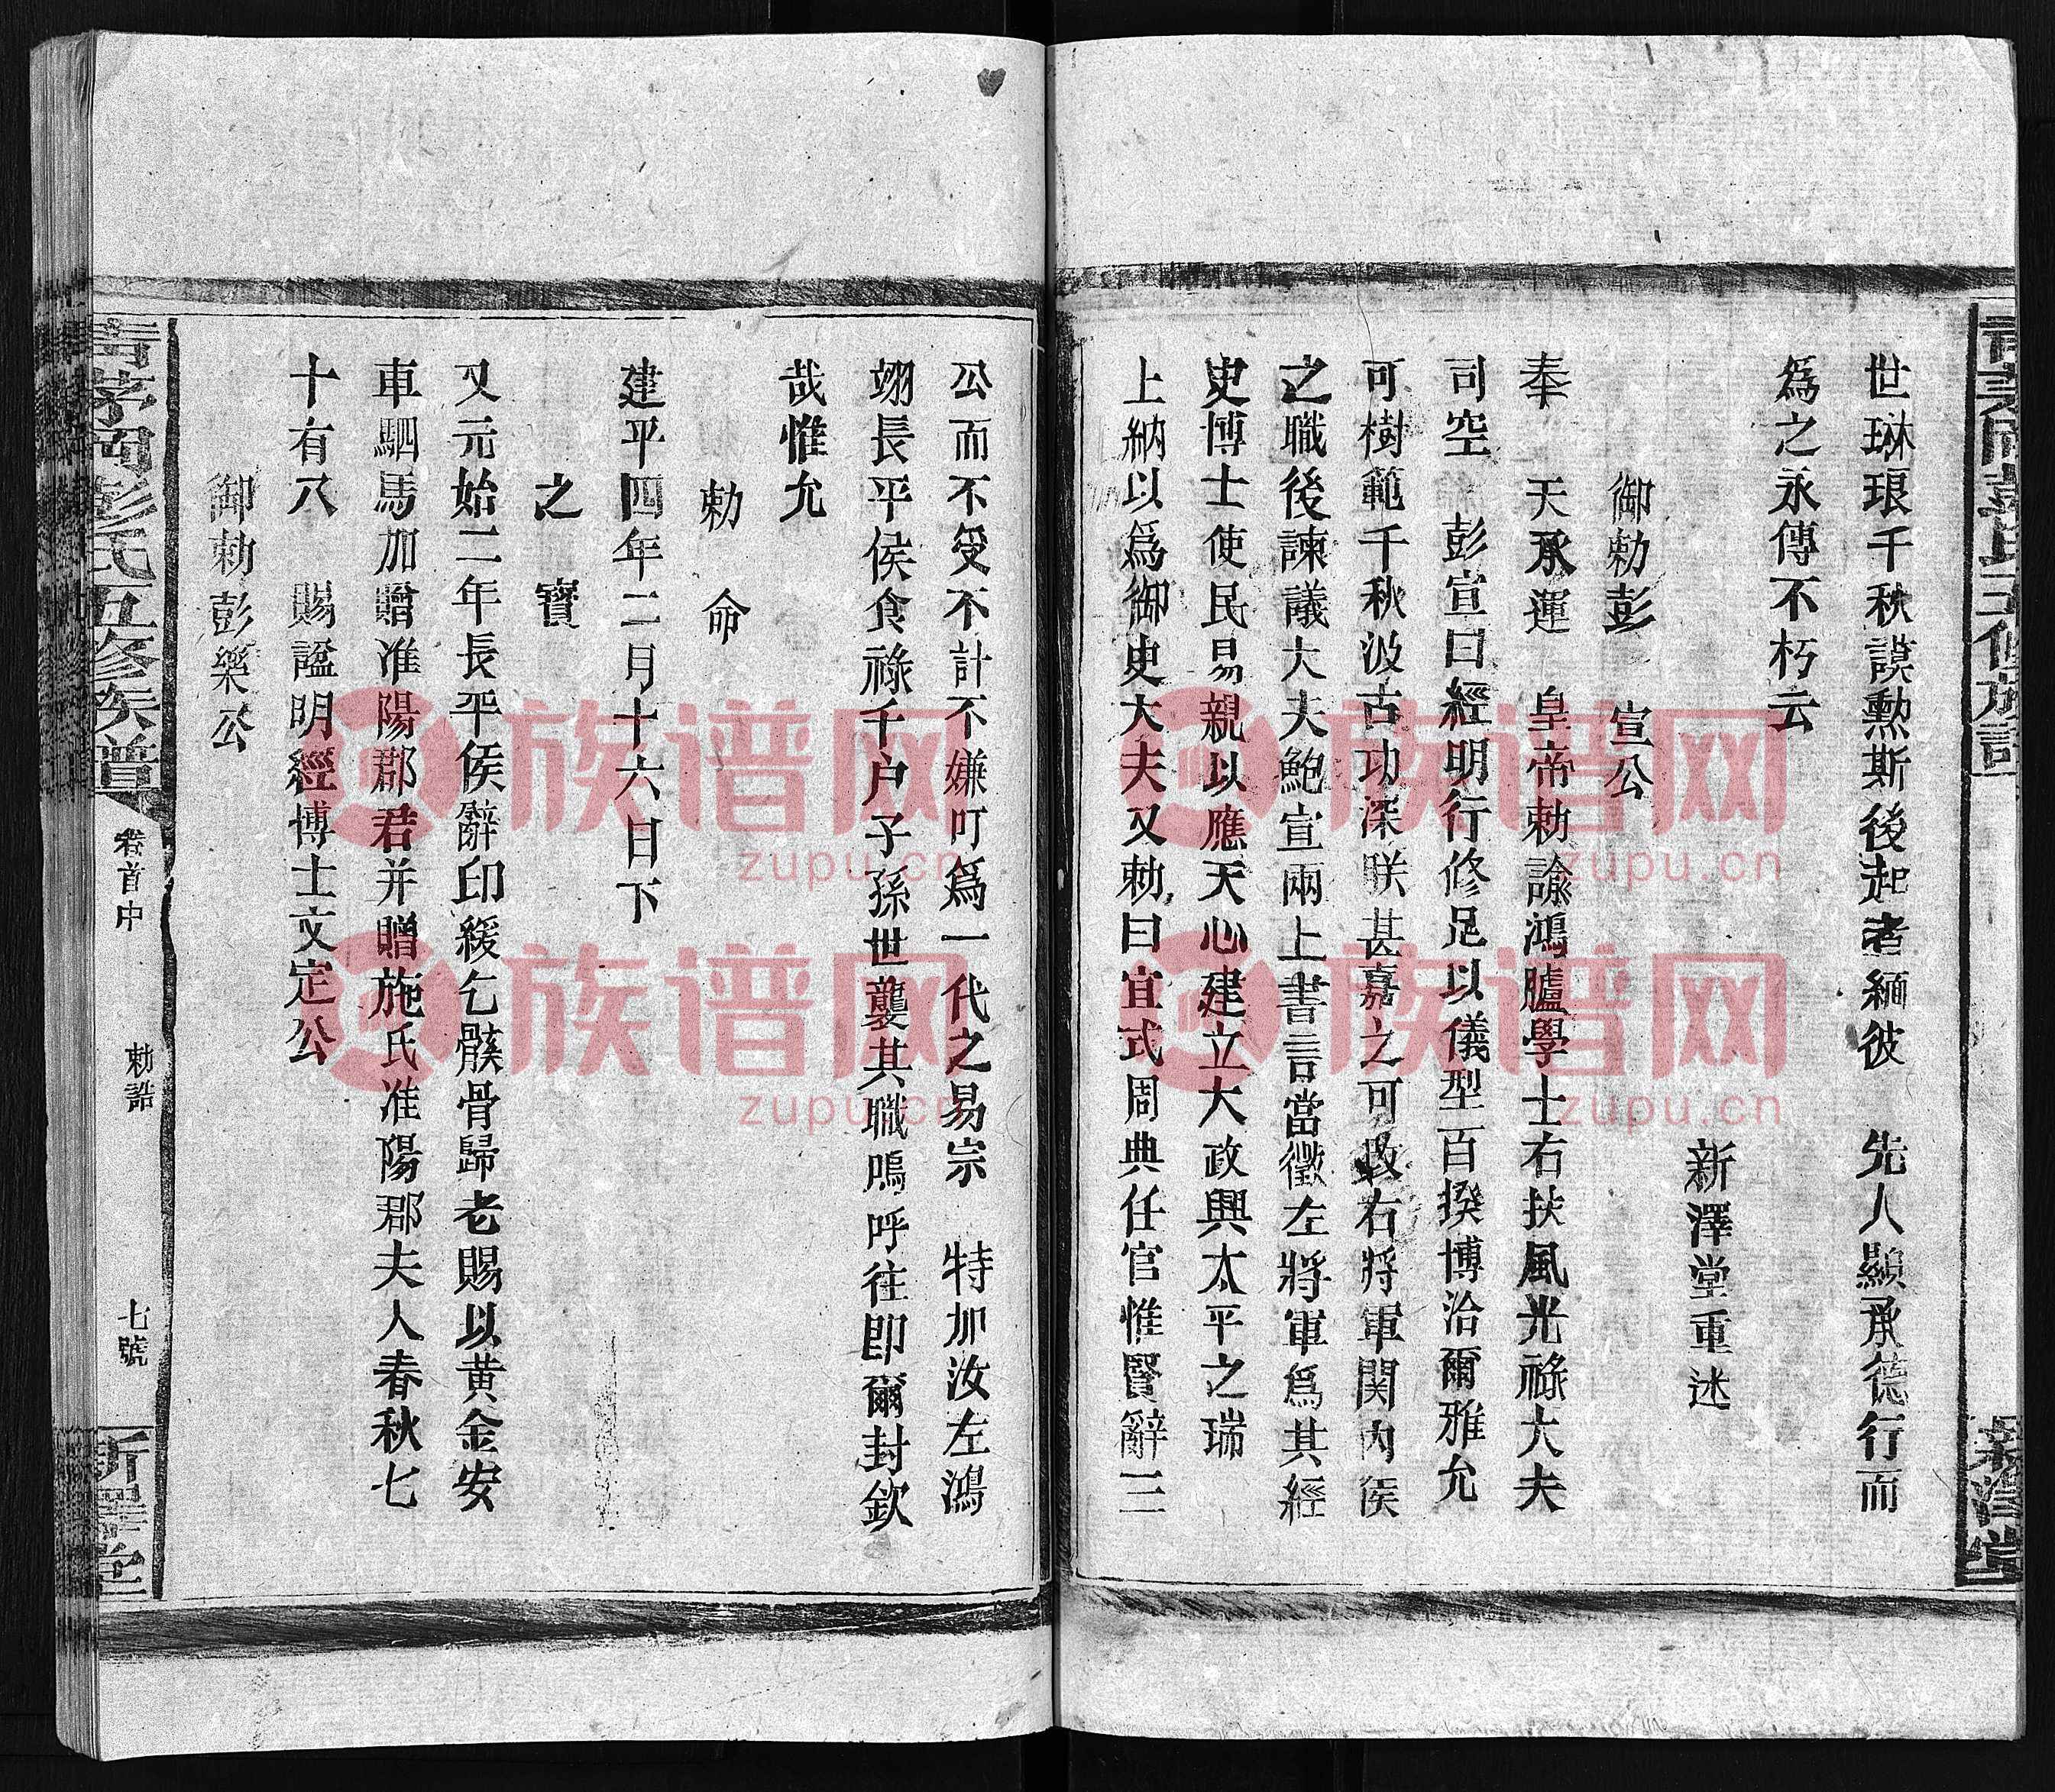 世琳琅千秋謨勲斯後起者緬彼 先人顯承德行而
為之永傳不朽云
新澤堂重述
御勅彭 宣公
奉 天承運 皇帝勅諭鴻臚學士右扶風光祿大夫
司空 彭宣曰經明行修足以儀型百揆博洽爾雅允
可樹範千秋汲古功深朕甚嘉之可改右將軍関內侯
之職後諫議大夫鮑宣兩上書言當徵左將軍爲其經
史博士使民易親以應天心建立大政興太平之瑞
上納以爲御史大夫又勅曰宜式周典任官惟賢辭三
公而不受不計不嫌叮爲一代之易宗 特加汝左鴻
翊長平侯食祿千户子孫世襲其職嗚呼往即爾封欽
哉惟允
勅 命
建平四年二月十六日下
之 寶
又元始二年長平侯辭印綬乞骸骨歸老賜以黄金安
車駟馬加贈淮陽郡君并贈施氏淮陽郡夫人春秋七
十有八 賜諡明經博士文定公
御勅彭樂公
青茅岡彭氏五修族譜 卷首中 勅誥 七號 新澤堂
族谱网
zupu.cn
族谱网
zupu.cn
族谱网
zupu.cn
族谱网
zupu.cn